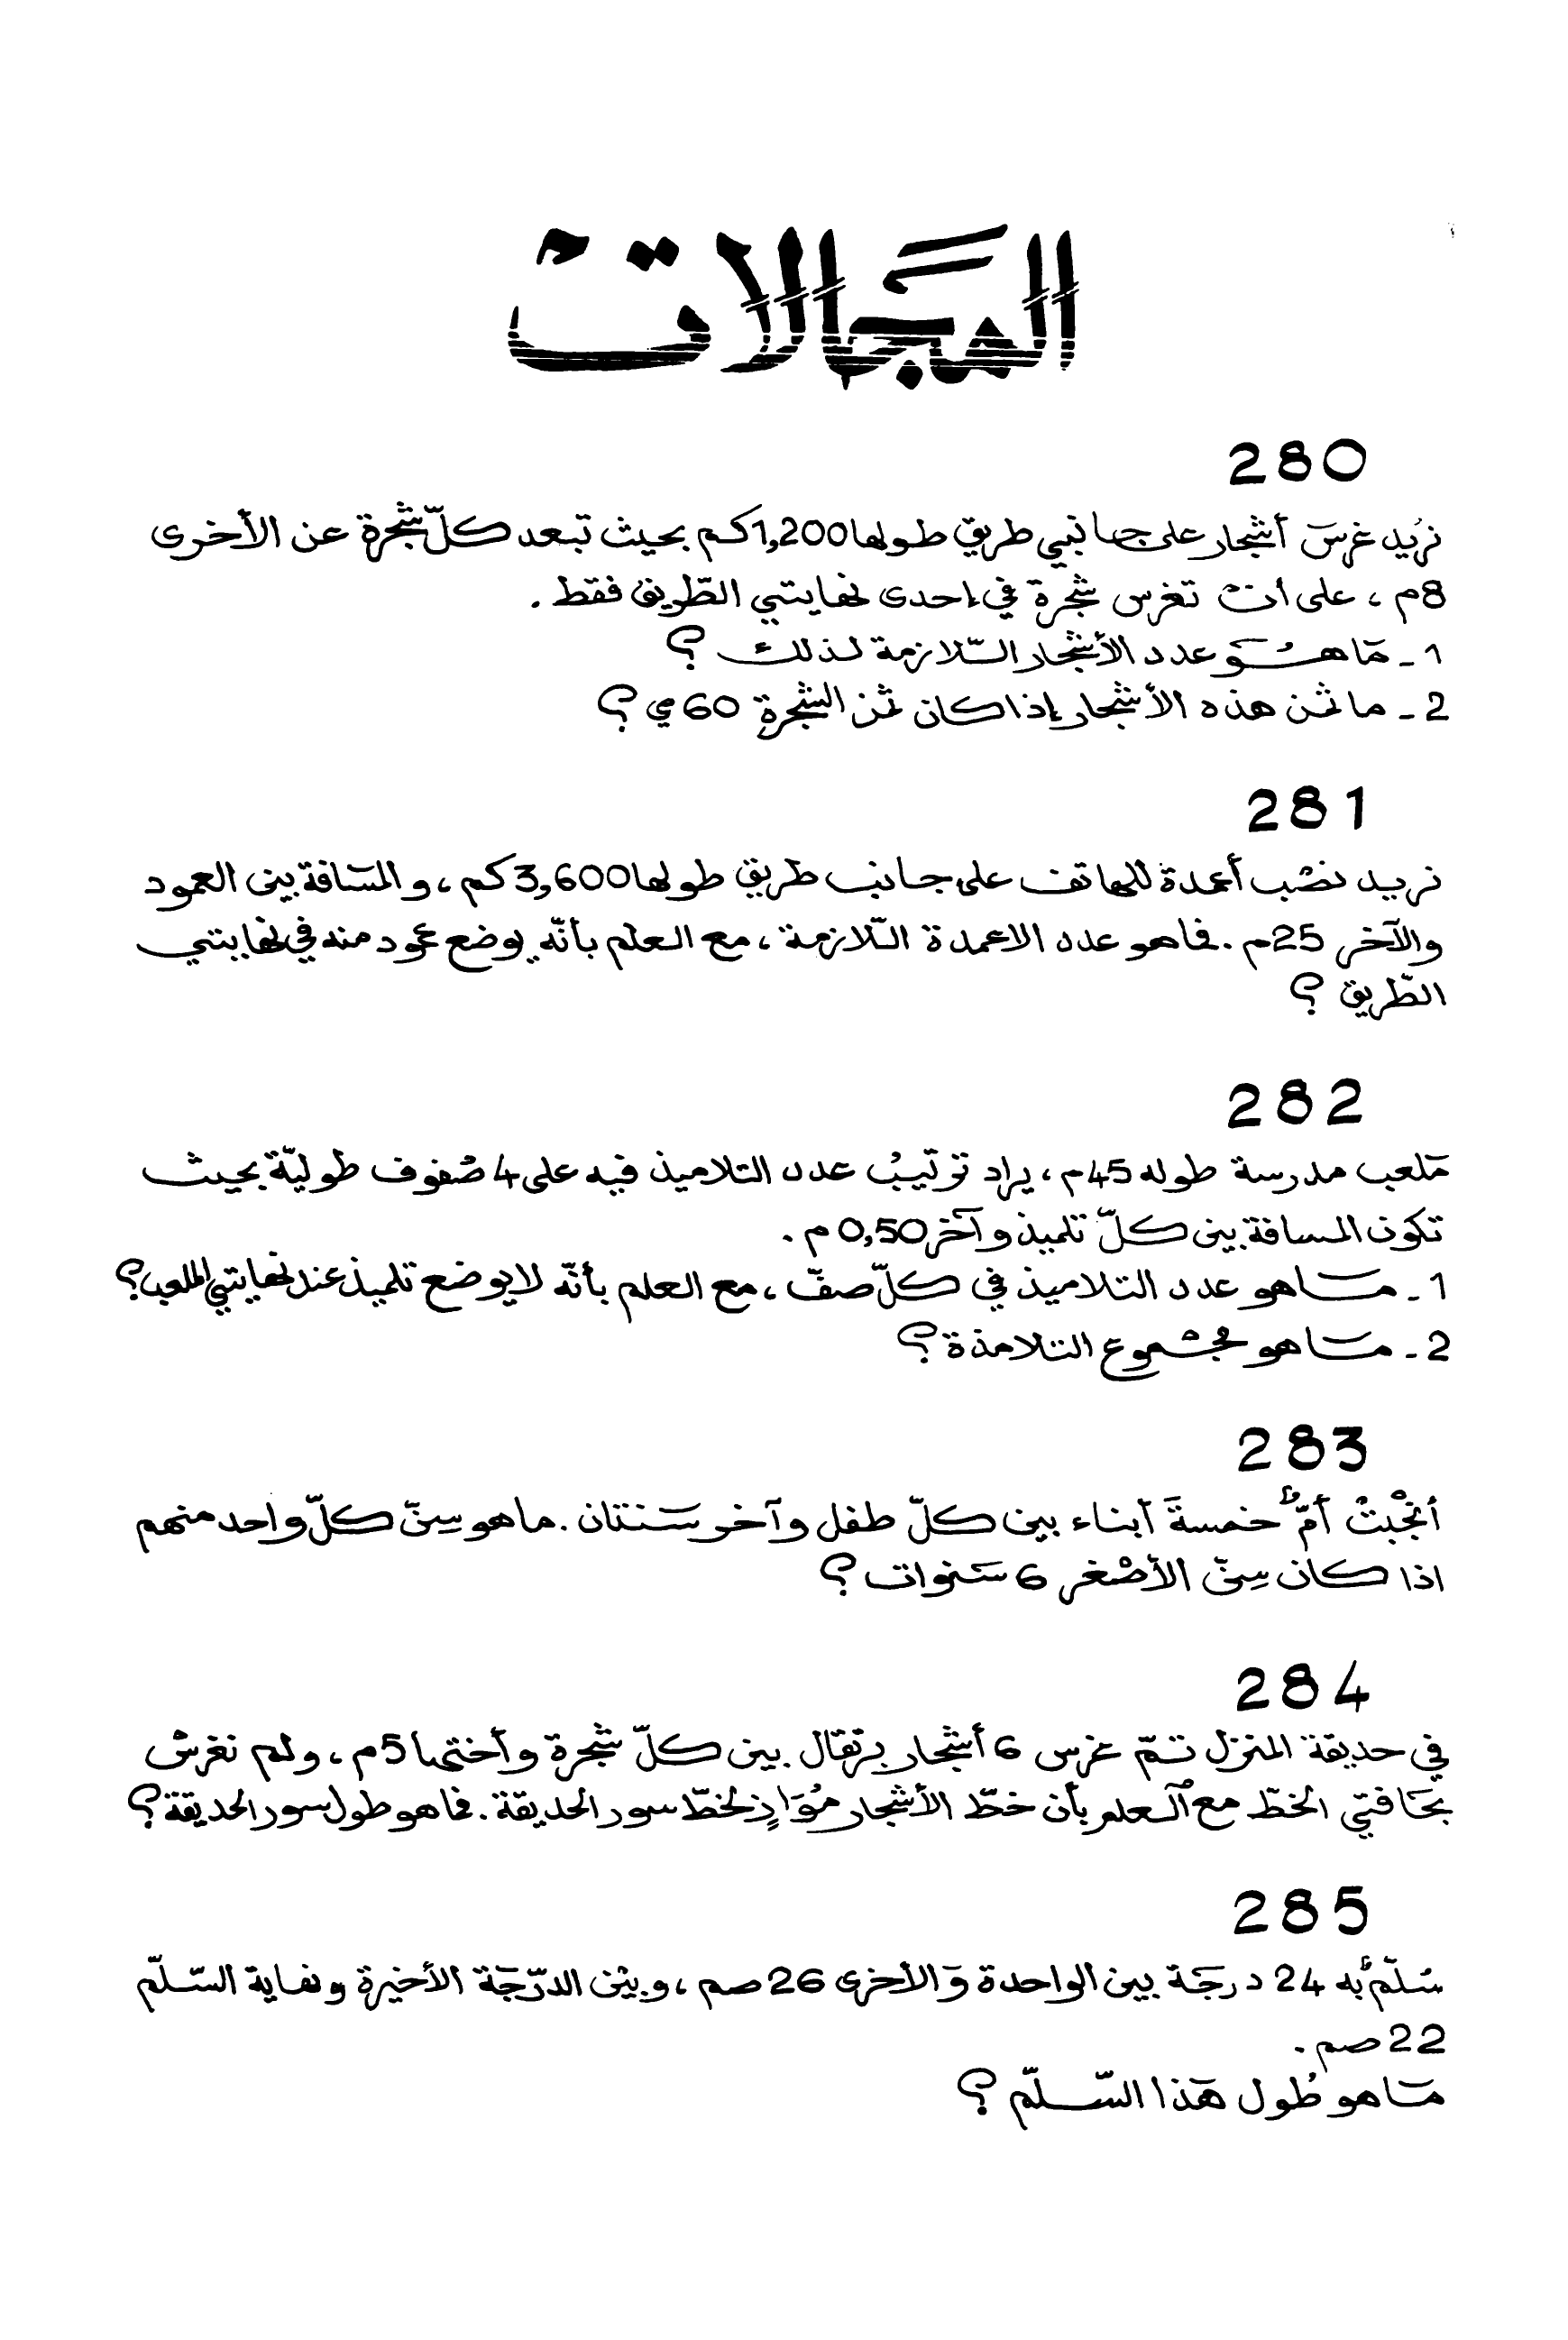 المجالات
280
نريد غرسَ أشجار على جانبي طريق طولها 1,200 كم بحيث تبعد كلّ شجرة عن الأخرى
8م ، على أن تغرس شجرة في إحدى نهايتي الطّريق فقط .
1 - مَا هُوَ عدد الأشجار الّلازمة لذلك ؟
2 - ما ثمن هذه الأشجار إذا كان ثمن الشجرة 60 ي ؟
281
نريد نصْب أعمدة للهاتف على جانب طريق طولها 3,600 كم ، والمسَافة بين العمود
والآخر 25م . فما هو عدد الاعمدة الّلازمة ، مع العلم بأنّه يوضع عمود منه في نهايتي
الطّريق ؟
282
مَلعب مدرسة طوله 45م ، يراد ترتيبُ عدد التلاميذ فيه على 4 صُفوف طوليّة بحيث
تكون المسافة بين كلّ تلميذ وآخر 0,50 م .
1 - مَا هو عدد التلاميذ في كلّ صفّ ، مع العلم بأنّه لا يوضع تلميذ عند نهايتي الملعب ؟
2 - مَا هو مجْموع التلامذة ؟
283
أنجْبتْ أمٌّ خمسةَ أبناء بين كلّ طفل وآخر سَنتان . ما هو سِنّ كلّ واحد منهم
اذا كان سِنّ الأصْغر 6 سَنوات ؟
284
في حديقة المنزل تمّ غرس 6 أشجار برتقال بين كلّ شجرة وأختها 5م ، ولم نغرسْ
بحَافتيّ الخطّ مع العلم بأن خطّ الأشجار مُوَازٍ لخطّ سور الحديقة . فما هو طول سور الحديقة ؟
285
سُلّمٌ به 24 درجَة بين الواحدة وَالأخرى 26 صم ، وبيْن الدرّجَة الأخيرة ونهاية السّلّم
22 صم .
مَا هو طُول هَذا السّلّم ؟